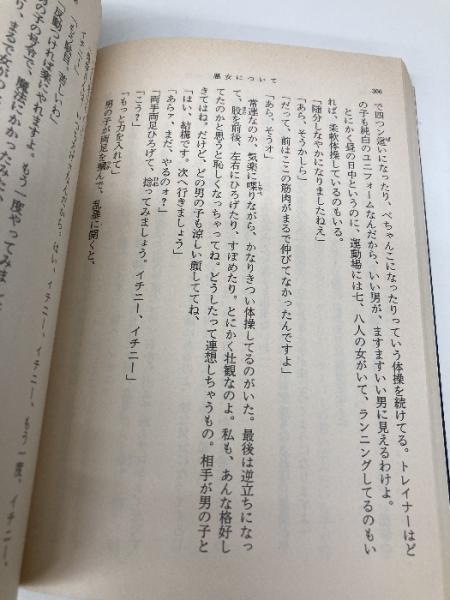 306
悪女について
で四つン這いになったり、ぺちゃんこになったりっていう体操を続けてる。トレイナーはど
の子も純白のユニフォームなんだから、いい男が、ますますいい男に見えるわけよ。
とにかく昼の日中というのに、運動場には七、八人の女がいて、ランニングしてるのもい
れば、柔軟体操しているのもいる。
「随分しなやかになりましたねえ」
「あら、そうかしら」
「だって、前はここの筋肉がまるで伸びてなかったんですよ」
「あら、そうオ」
常連なのか、気楽に喋りながら、かなりきつい体操してるのがいた。最後は逆立ちになっ
て、股を前後、左右にひろげたり、すぼめたり。とにかく壮観なのよ。私も、あんな格好し
てたのかと思うと恥しくなっちゃってね。どうしたって連想しちゃうもの。相手が男の子と
きてはね。だけど、どの男の子も涼しい顔しててね、
「はい、結構です。次へ行きましょう」
「あらァ、まだ、やるのォ?」
「両手両足ひろげて、捻ってみましょう。イチニー、イチニー」
「こう?」
「もっと力を入れて」
男の子が両足を掴んで、乱暴に開くと、
「駄目、苦しいわ」
「反動つければ楽にやれますよ。もう一度やってみまし
男の子の方が、魔法にかかったみたい
り、まるで女がの
はい、イチニー、イチニー、もう一度、イチニー、